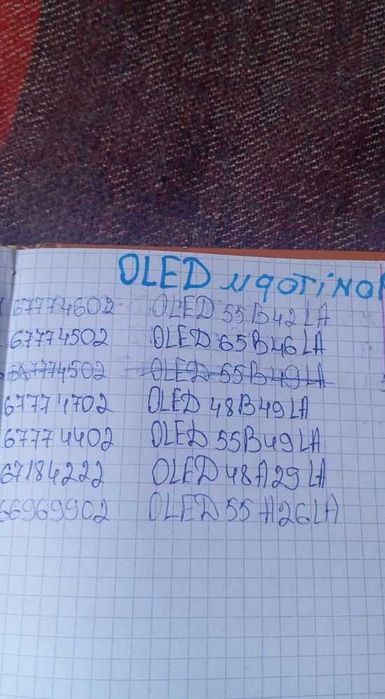 OLED
67774602 OLED 55B42LA
67774502 OLED 65B46LA
67774502 OLED 55B49LA
67774702 OLED 48B49LA
67774402 OLED 55B49LA
67184222 OLED 48A29LA
66969902 OLED 55A26LA